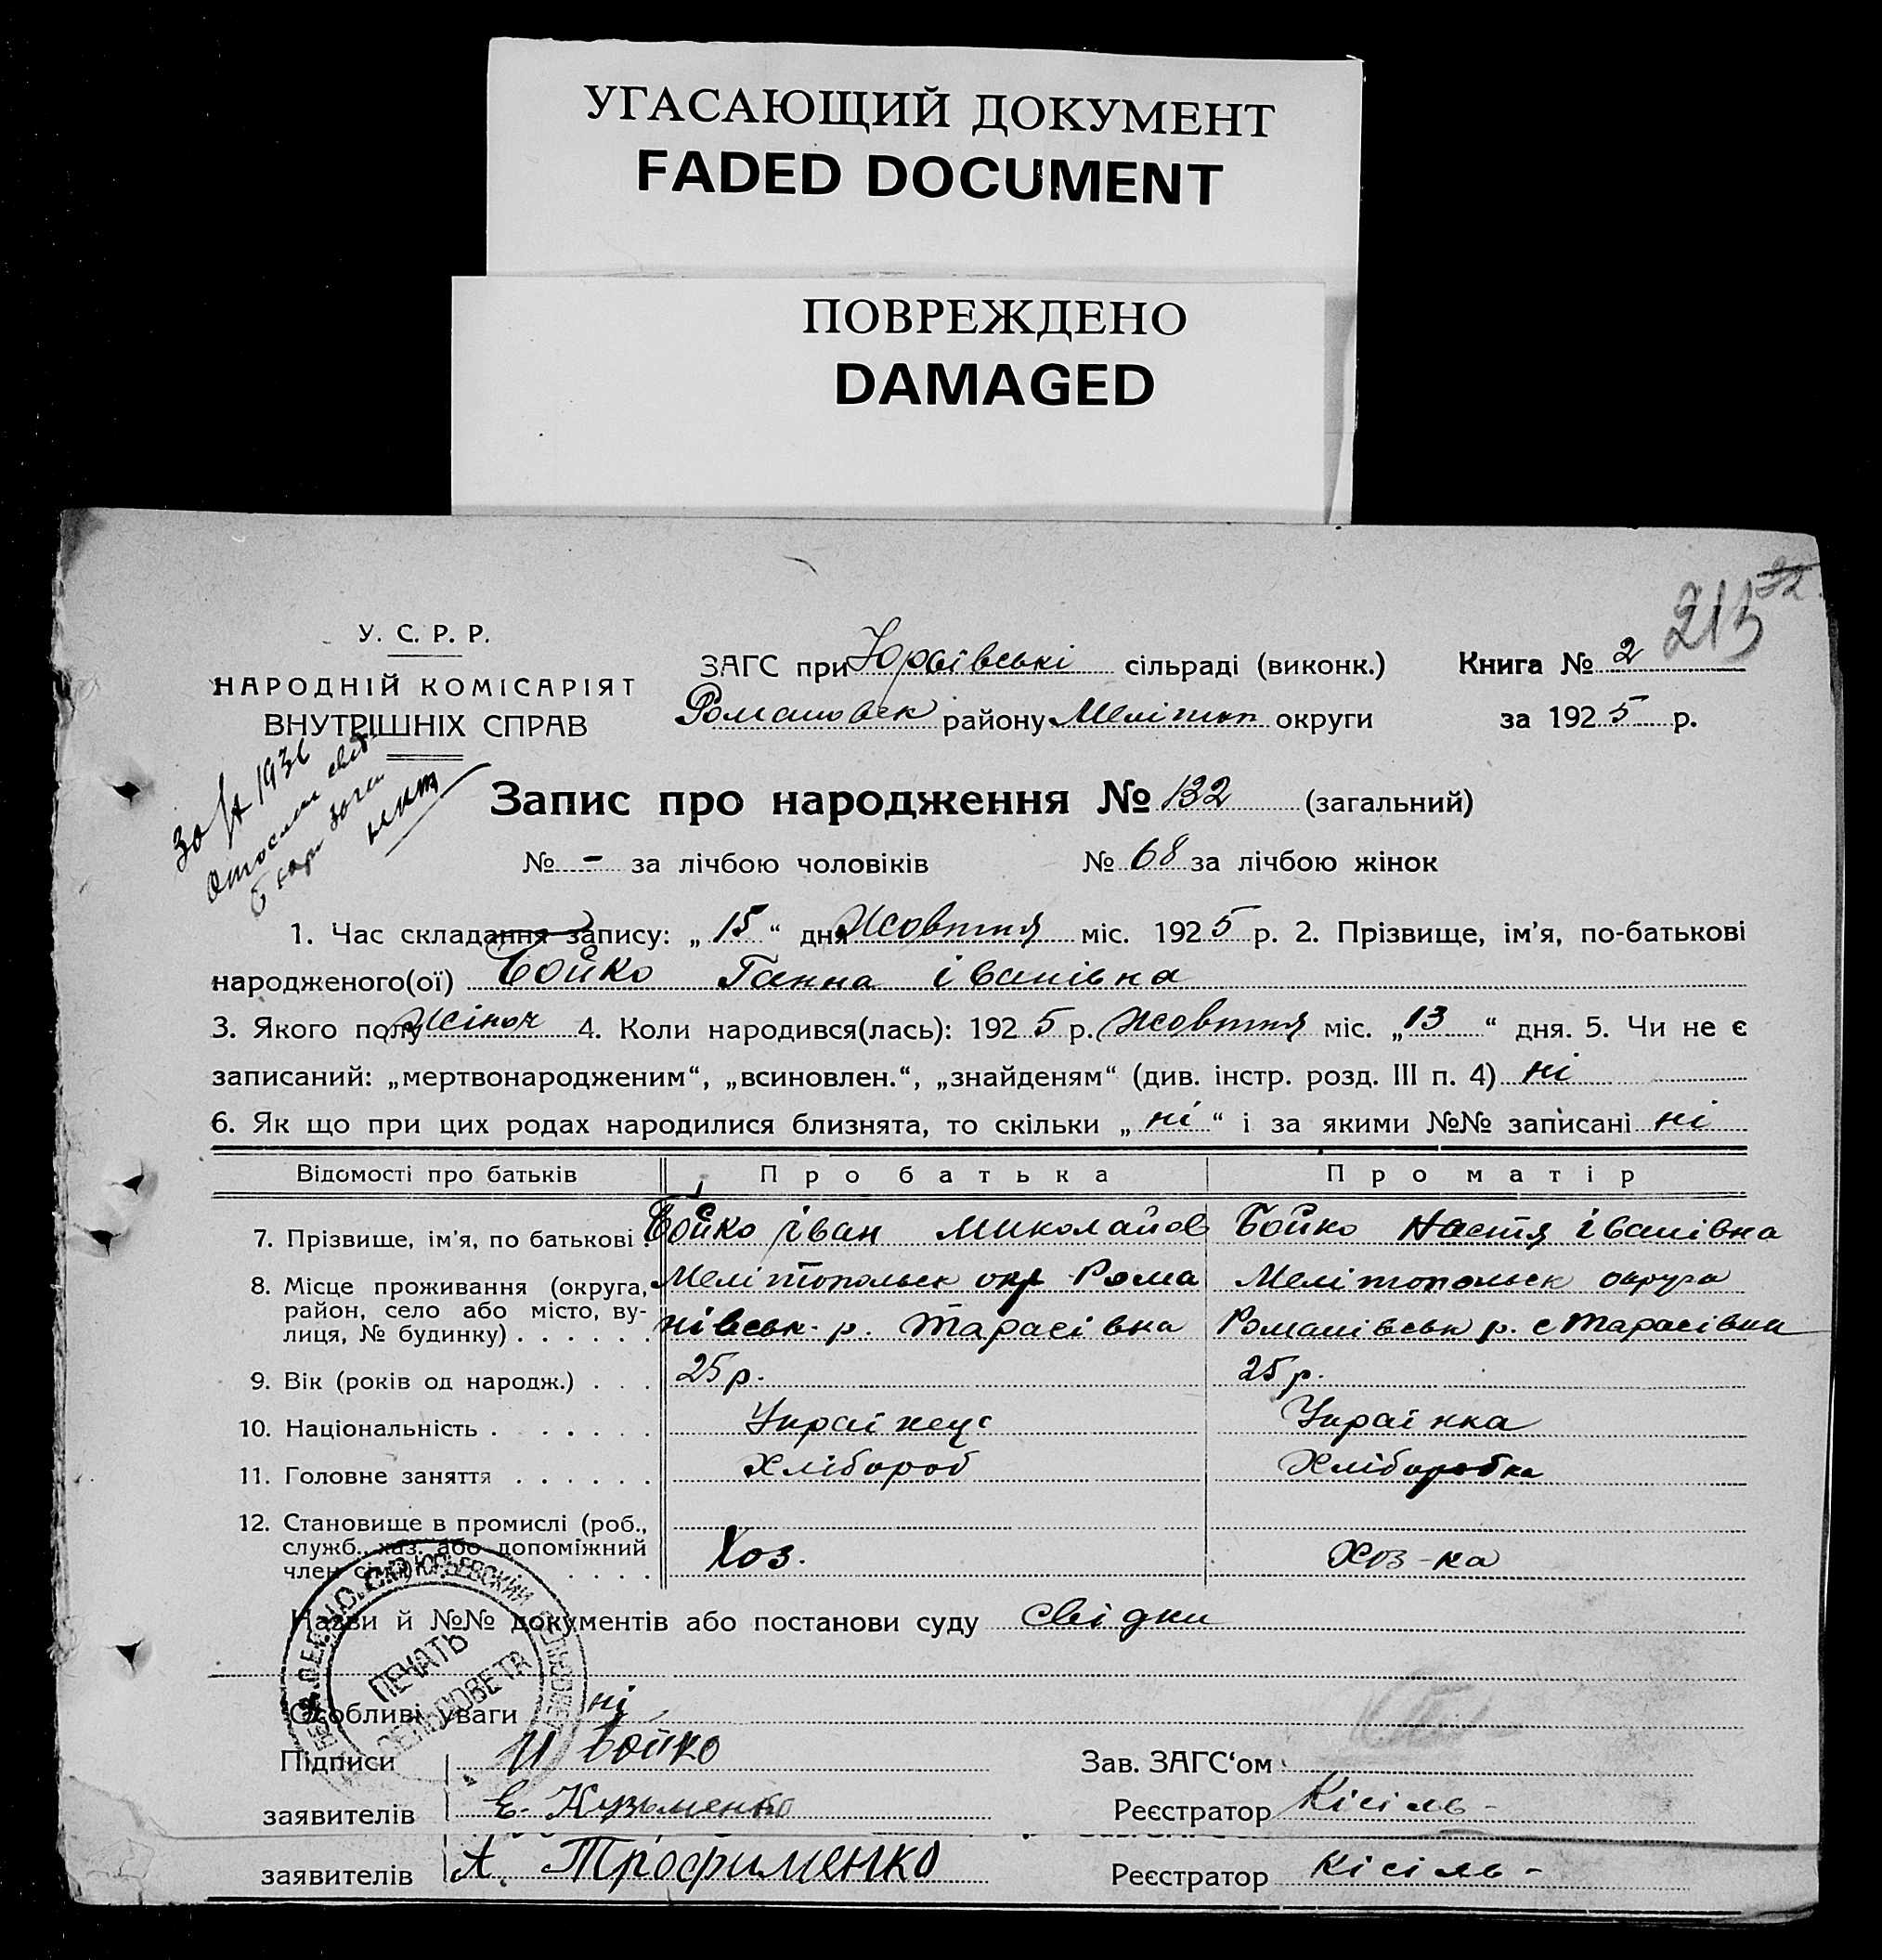 УГАСАЮЩИЙ ДОКУМЕНТ
FADED DOCUMENT
ПОВРЕЖДЕНО
DAMAGED
32
215
У. С. Р. Р.
НАРОДНІЙ КОМІСАРІЯТ
ВНУТРІШНІХ СПРАВ
ЗАГС при Юрʼївські сільраді (виконк.) Книга № 2
Романовск району Меліноп округи за 1925 р.
1936
Запис про народження № 132 (загальний)
№ - за лічбою чоловіків № 68 за лічбою жінок
1. Час складання запису: „15“ дня Жовтня міс. 1925 р. 2. Прізвище, ім'я, по-батькові
народженого(ої) Бойко Ганна іванівна
3. Якого полу Жіноч 4. Коли народився(лась): 1925 р. Жовтня міс. „13“ дня. 5. Чи не є
записаний: „мертвонародженим“, „всиновлен.“, „знайденям“ (див. інстр. розд. III п. 4) ні
6. Як що при цих родах народилися близнята, то скільки „ні“ і за якими №№ записані ні
Відомості про батьків Про батька Про матір
7. Прізвище, ім'я, по батькові . Бойко іван Миколайов Бойко Настя іванівна
8. Місце проживання (округа, Мелітопольск окр Рома Мелітопольск округа
район, село або місто, ву-
лиця, № будинку) . . . . . . нівськ. р. Тарасівка Романівськ р. с Тарасівка
9. Вік (років од народж.) . . . 25 р. 25 р.
10. Національність . . . . . . . Украінець Украінка
11. Головне заняття . . . . . . Хлібороб Хліборобка
12. Становище в промислі (роб.,
служб., хаз. або допоміжний
член сімї) . . . . Хоз. Хоз-ка
Назви й №№ документів або постанови суду свідки
ЮРЬЕВСКИЙ
ПЕЧАТЬ
СЕЛЬСОВЕТА
Особливі уваги ні
Підписи И Бойко Зав. ЗАГС‘ом
заявителів Е. Кузьменко Реєстратор Кісіль -
заявителів А. Трофименко Реєстратор Кісіль -